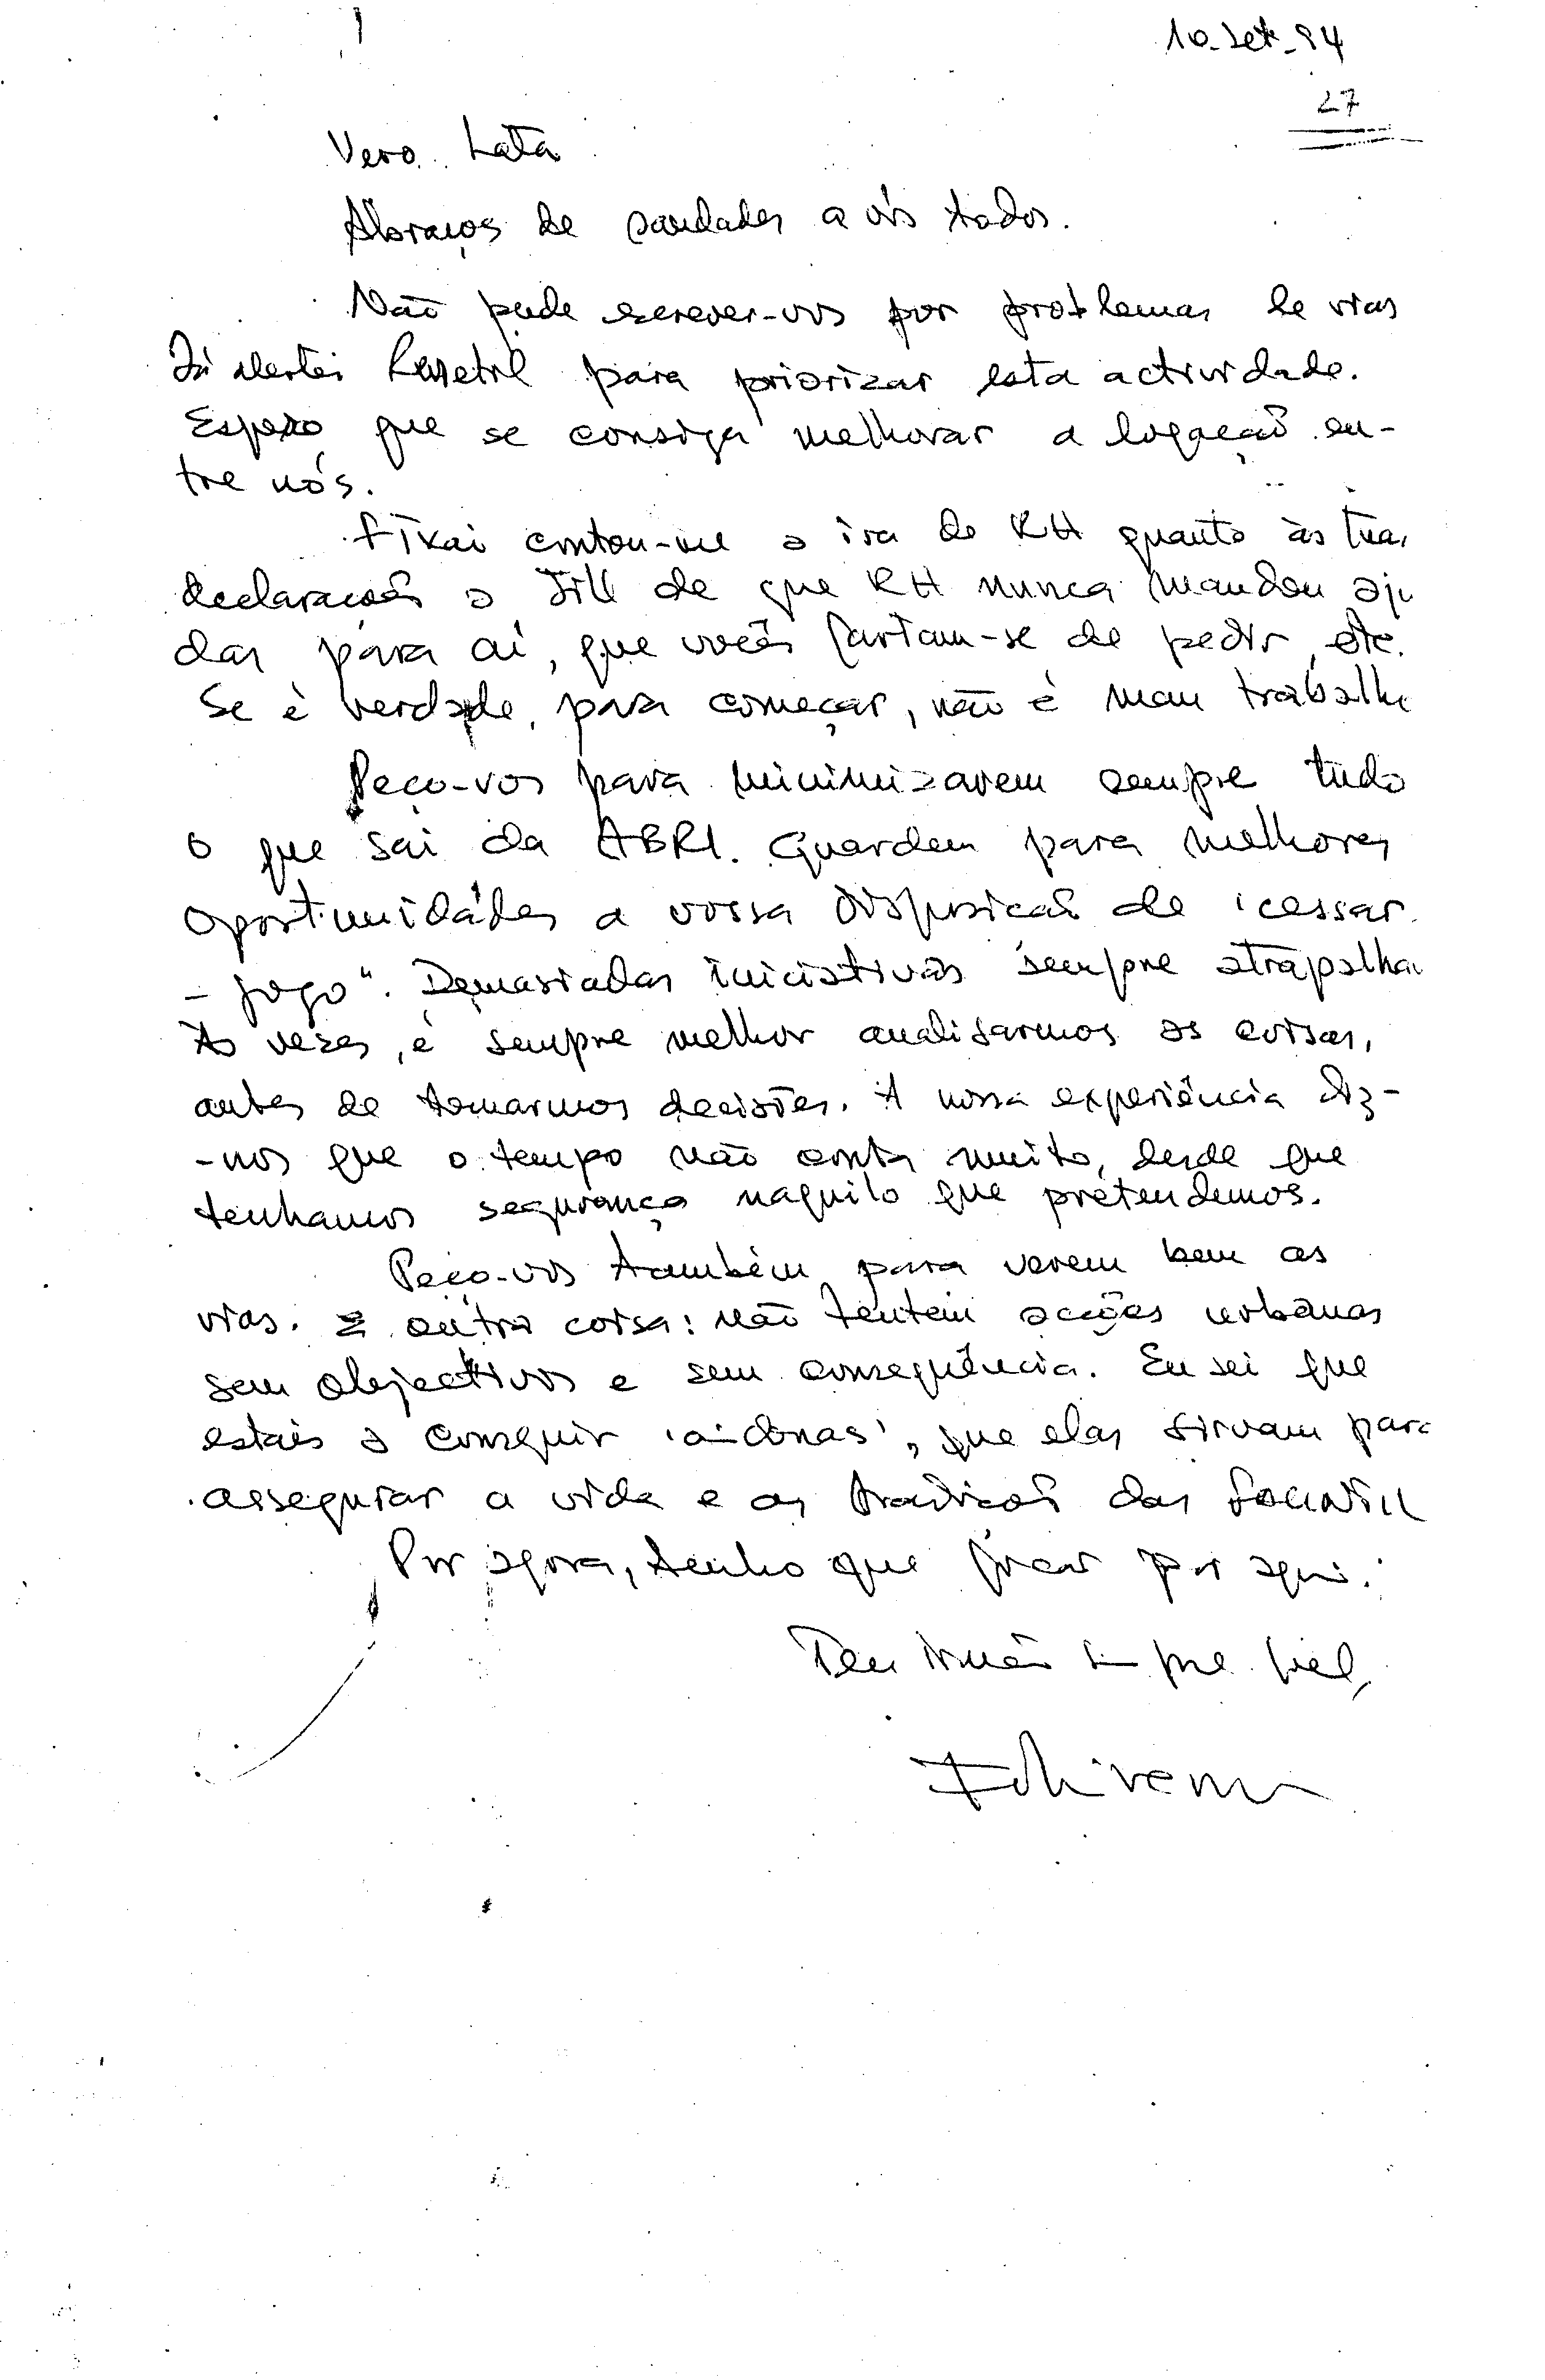 10-Set-94
27
Vero. Lata
Abraços de saudades a vós todos.
Não pude escrever-vos por problemas de vias
Já alertei para priorizar esta actividade.
Espero que se consiga melhorar a ligação en-
tre nós.
contou-me a ira de RH quanto às tuas
declarações a de que RH nunca mandou aju
das para aí, que vocês fartam-se de pedir, etc.
Se é verdade, para começar, não é mau trabalho
Peço-vos para minimizarem sempre tudo
o que sai da ABRI. Guardem para melhores
oportunidades a vossa disposição de cessar
-fogo". Demasiadas iniciativas sempre atrapalham
Às vezes, é sempre melhor analisarmos as coisas,
antes de tomarmos decisões. A nossa experiência diz-
-nos que o tempo não conta muito, desde que
tenhamos segurança naquilo que pretendemos.
Peço-vos também para verem bem as
vias. E outra coisa: não tentem acções urbanas
sem objectivos e sem consequência. Eu sei que
estais a conseguir que elas sirvam para
assegurar a vida e as das
Por agora, tenho que ficar por aqui.
Teu irmão sempre fiel,